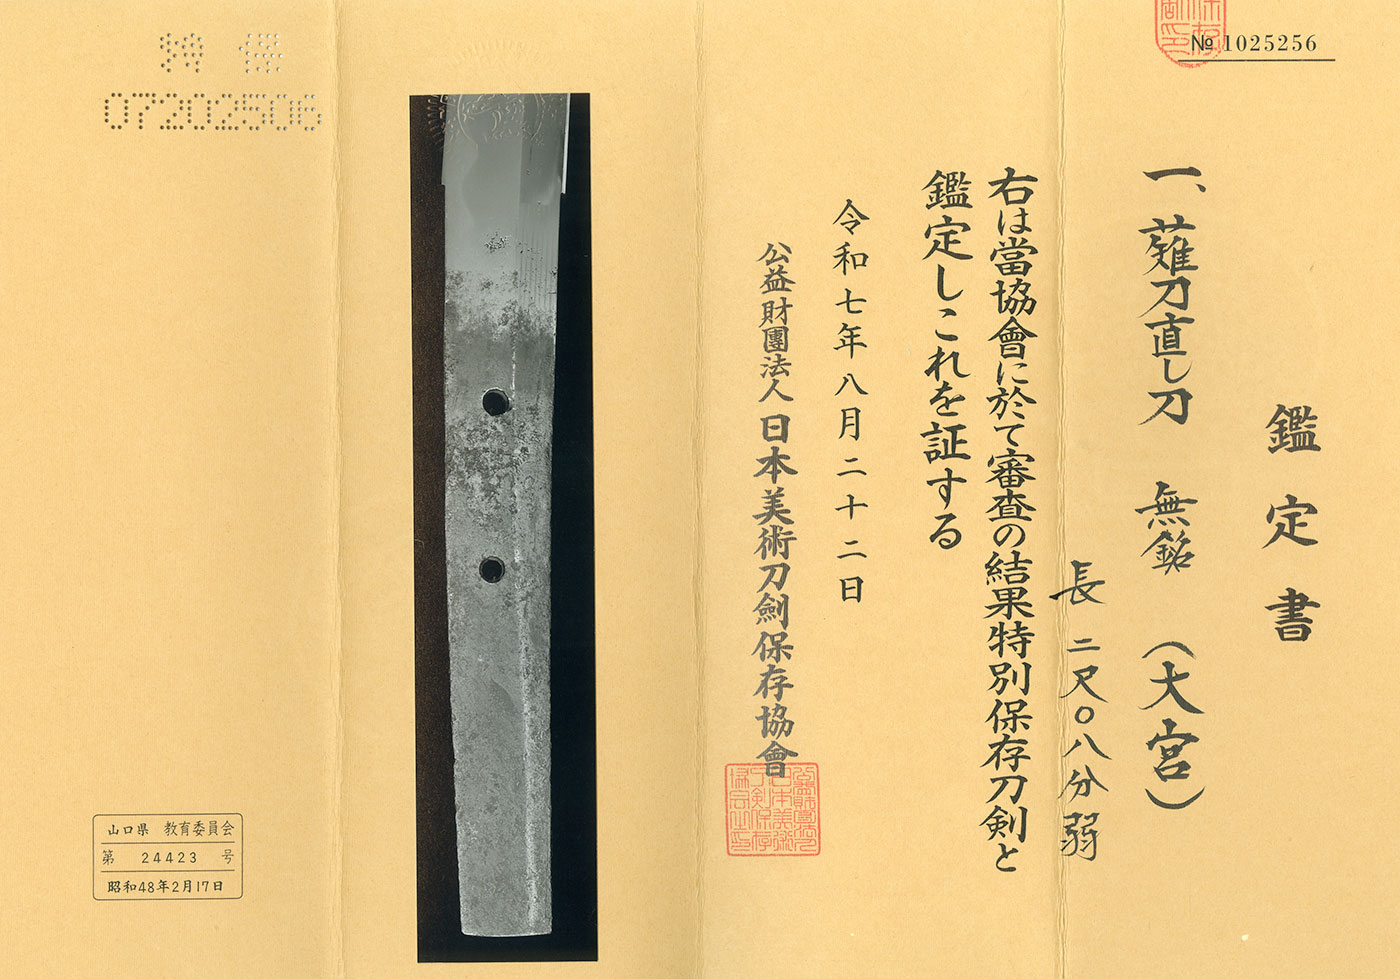 № 1025256
鑑定書
一、薙刀直し刀 無銘 (大宮)
長 二尺〇八分弱
右は當協會に於て審査の結果特別保存刀剣と
鑑定しこれを証する
令和七年八月二十二日
公益財團法人日本美術刀劍保存協會
特保
07202506
山口県 教育委員会
第 24423 号
昭和48年2月17日